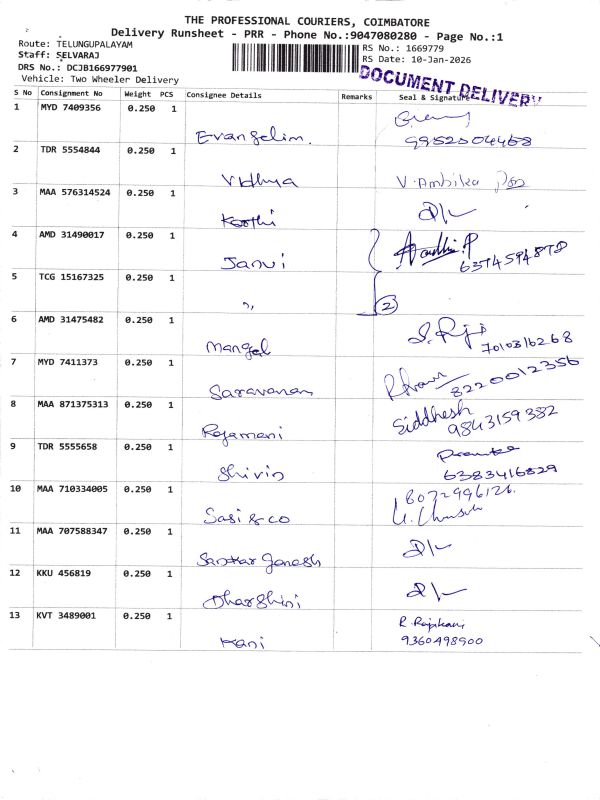 THE PROFESSIONAL COURIERS, COIMBATORE
Delivery Runsheet - PRR - Phone No.:9047080280 - Page No.:1
Route: TELUNGUPALAYAM
Staff: SELVARAJ
DRS No.: DCJB166977901
Vehicle: Two Wheeler Delivery
RS No.: 1669779
RS Date: 10-Jan-2026
DOCUMENT DELIVERY
S No Consignment No Weight PCS Consignee Details Remarks Seal & Signature
1 MYD 7409356 0.250 1 Evangelin. 9952004468
2 TDR 5554844 0.250 1 Vidhya V. Ambika
3 MAA 576314524 0.250 1 Keerthi D/-
4 AMD 31490017 0.250 1 Janvi
5 TCG 15167325 0.250 1 " 2
6 AMD 31475482 0.250 1 Mangal
7 MYD 7411373 0.250 1 Saravanan 8220012356
8 MAA 871375313 0.250 1 Rajamani Siddhesh 9843159382
9 TDR 5555658 0.250 1 Shivin 6383416829
10 MAA 710334005 0.250 1 Sasi & co 8072996126.
11 MAA 707588347 0.250 1 Sankar Ganesh D/-
12 KKU 456819 0.250 1 Dharshini D/-
13 KVT 3489001 0.250 1 Kani R. Rajikani 9360498900